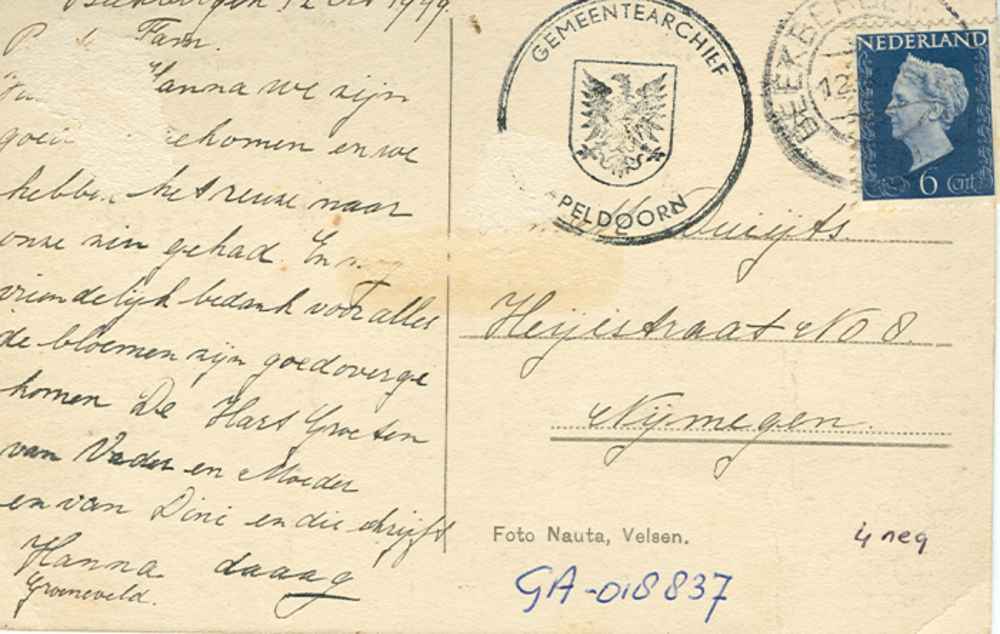 Beekbergen 12 Oct 1949.
Fam.
Hanna we zijn
goed ekomen en we
hebben het reuze naar
onze zin gehad. En nog
vriendelijk bedank voor alles
de bloemen zijn goed overge
komen De Hart Groeten
van Vader en Moeder
en van Dini en die schrijft
Hanna daaag
Groeneveld.
GEMEENTEARCHIEF
APELDOORN
BEEKBERGEN
12
NEDERLAND
6 Cent
Duijts.
Heijestraat No 8.
Nijmegen.
Foto Nauta, Velsen.
4 neg
GA-018837